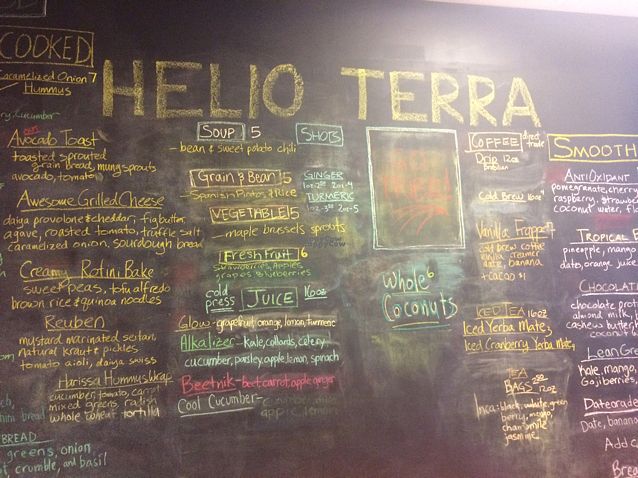 COOKED
HELIO TERRA
Caramelized Onion 7
Hummus
Cucumber
Avocado Toast
toasted sprouted
grain bread, mung sprouts
avocado, tomato
Awesome Grilled Cheese
daiya provolone & cheddar, fig butter,
agave, roasted tomato, truffle salt
caramelized onion, sourdough bread
Creamy Rotini Bake
sweet peas, tofu alfredo
brown rice & quinoa noodles
Reuben
mustard marinated seitan,
natural kraut & pickles
tomato aioli, daiya swiss
Harissa Hummus Wrap
cucumber, tomato,
mixed greens, radish
whole wheat tortilla
bread
BREAD
greens, onion
crumble, and basil
SOUP 5
- bean & sweet potato chili
Grain & Bean 5
- Spanish Pintos & Rice
VEGETABLE 5
- maple brussels sprouts
Fresh Fruit 6
Strawberries, Apples,
Grapes & Blueberries
cold press JUICE 16oz
Glow - grapefruit, orange, lemon, turmeric
Alkalizer - Kale, collards, celery
cucumber, parsley, apple, lemon, spinach
Beetnik - beet, carrot, apple, ginger
Cool Cucumber - cucumber, mint
apple, lemon
SHOTS
GINGER
1oz-2 2oz-4
TURMERIC
1oz-3 2oz-5
Whole 6
Coconuts
COFFEE direct trade
Drip 12oz
Brazilian
Cold Brew 16oz
Vanilla Frappe
cold brew coffee
vanilla creamer
date, banana
+ cacao $1
ICED TEA 16oz
Iced Yerba Mate
Iced Cranberry Yerba Mate
TEA
BAGS 12oz
black, white, green
berry,
chamomile
jasmine
SMOOTH
ANTIOXIDANT
pomegranate, cherry
raspberry, strawbe
coconut water, fl
TROPICAL
pineapple, mango
dates, orange juice
CHOCOLAT
chocolate prote
almond milk, b
cashew butter,
coconut
Lean Gre
Kale, mango,
Goji berries
Dateorade
Date, banana
Add c
Brea